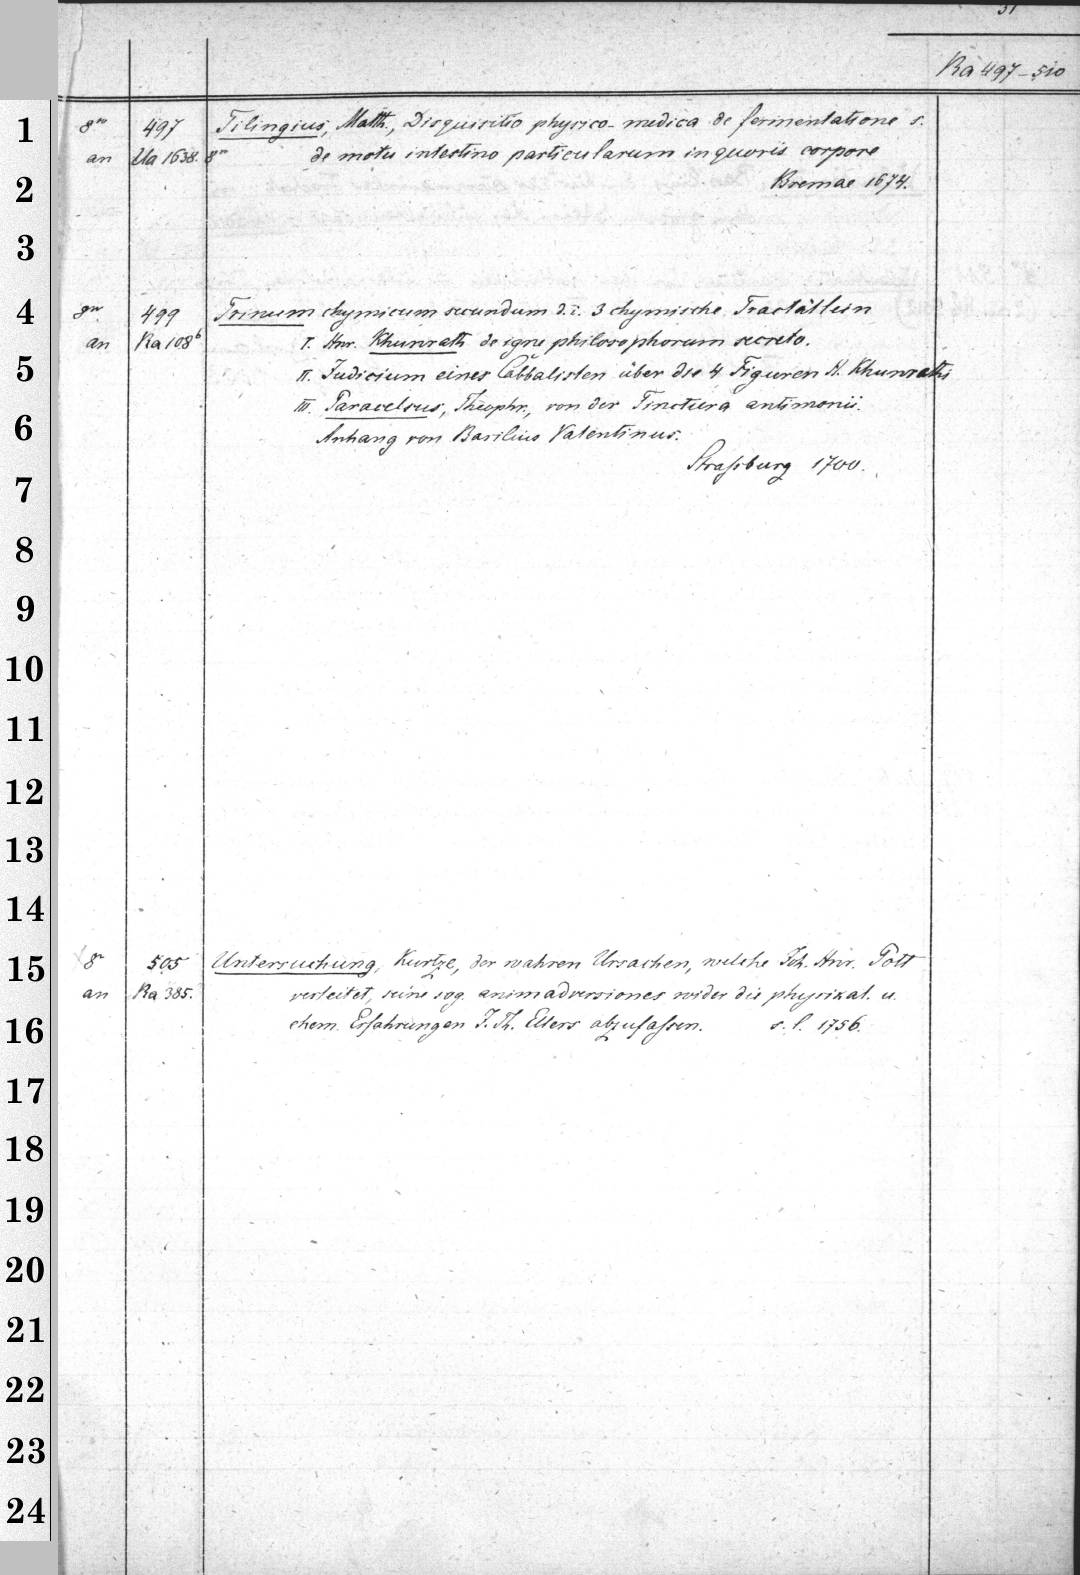 51
Ra 497-510
8° 497 Tilingius, Matth., Disquisitio physico-medica de fermentatione s.
an Ua 1638. 8° de motu intestino particularum in quovis corpore
Bremae 1674.
8° 499 Trinum chymicum secundum d. i. 3 chymische Tractätlein
an Ra 108b I. Hnr. Khunrath de igne philosophorum secreto.
II. Judicium eines Cabbalisten über die 4 Figuren H. Khunraths
III. Paracelsus, Theophr., von der Tinctura antimonii.
Anhang von Basilius Valentinus.
Straßburg 1700.
8° 505 Untersuchung, Kurtze, der wahren Ursachen, welche Joh. Hnr. Pott
an Ra 385. verleitet, seine sog. animadversiones wider die physikal. u.
chem. Erfahrungen J. Th. Ellers abzufassen. s. l. 1756.
1
2
3
4
5
6
7
8
9
10
11
12
13
14
15
16
17
18
19
20
21
22
23
24